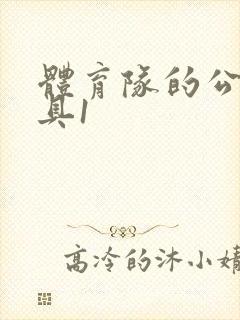 體育隊的公
具1
高冷的沐小婧